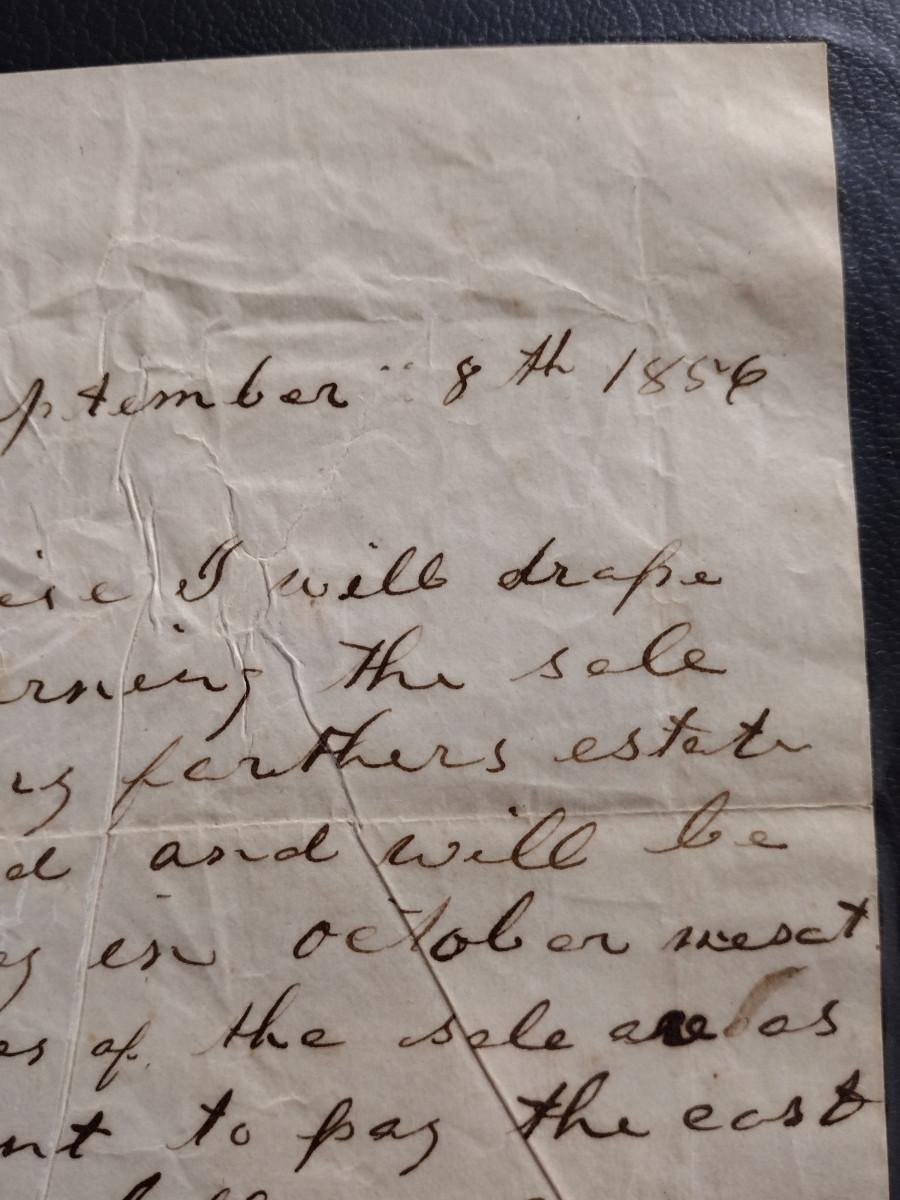 ptember " 8 th 1856
ise I will drape
erning the sale
farthers estate
d and will be
in october nesct
es of the sale are as
nt to pay the cost